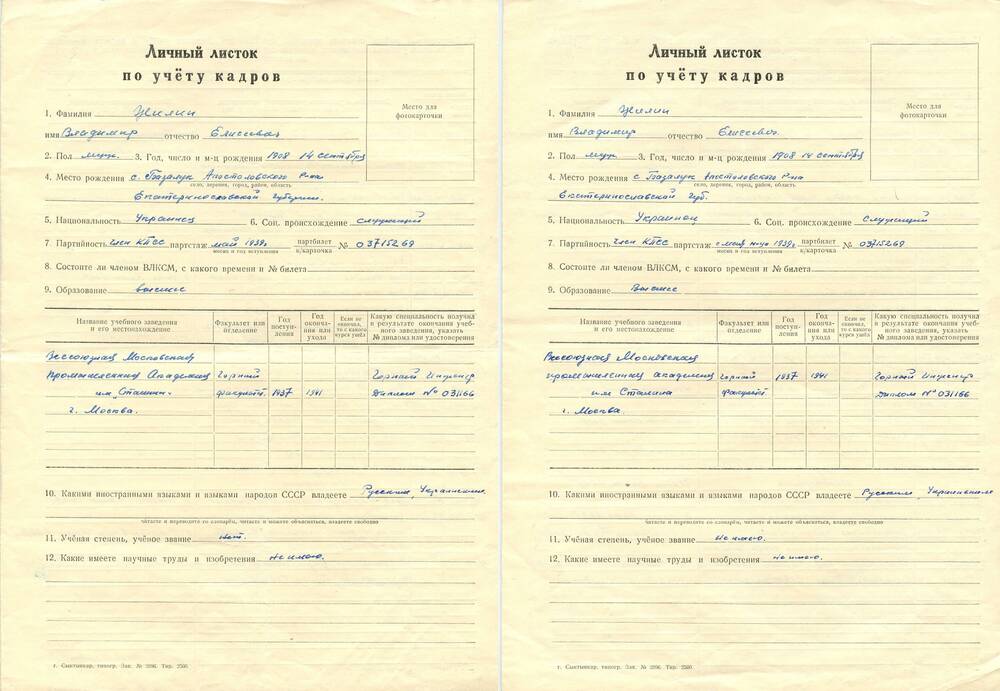 Личный листок
по учёту кадров
Место для
фотокарточки
1. Фамилия
имя Владимир отчество Елисеевич
2. Пол муж. 3. Год, число и м-ц рождения 1908 14 сентября
4. Место рождения с. Базалук Апостоловского Р-на
село, деревня, город, район, область
Екатеринославской губернии.
5. Национальность Украинец 6. Соц. происхождение служащий
7. Партийность член КПСС партстаж май 1939г партбилет № 03715269
месяц и год вступления к/карточка
8. Состоите ли членом ВЛКСМ, с какого времени и № билета
9. Образование высшее
Название учебного заведения
и его местонахождение
Факультет или
отделение
Год
поступ-
ления
Год
оконча-
ния или
ухода
Если не
окончил,
то с какого
курса ушёл
Какую специальность получил
в результате окончания учеб-
ного заведения, указать
№ диплома или удостоверения
Всесоюзная Московская
Промышленная Академия Горный Горный Инженер
им. Сталина факультет. 1937 1941 Диплом № 031166
г. Москва.
10. Какими иностранными языками и языками народов СССР владеете Русским, Украинским
читаете и переводите со словарём, читаете и можете объясняться, владеете свободно
11. Учёная степень, учёное звание нет.
12. Какие имеете научные труды и изобретения Не имею.
г. Сыктывкар, типогр. Зак. № Тир. 2500.
Личный листок
по учёту кадров
Место для
фотокарточки
1. Фамилия
имя Владимир отчество Елисеевич
2. Пол муж. 3. Год, число и м-ц рождения 1908 14 сентября
4. Место рождения с. Базалук Апостоловского Р-на
село, деревня, город, район, область
Екатеринославской губ.
5. Национальность Украинец 6. Соц. происхождение Служащий
7. Партийность член КПСС партстаж с мая 1939г партбилет № 03715269
месяц и год вступления к/карточка
8. Состоите ли членом ВЛКСМ, с какого времени и № билета
9. Образование Высшее
Название учебного заведения
и его местонахождение
Факультет или
отделение
Год
поступ-
ления
Год
оконча-
ния или
ухода
Если не
окончил,
то с какого
курса ушёл
Какую специальность получил
в результате окончания учеб-
ного заведения, указать
№ диплома или удостоверения
Всесоюзная Московская
промышленная академия Горный 1937 1941 Горный Инженер
им Сталина факультет. Диплом № 031166
г. Москва.
10. Какими иностранными языками и языками народов СССР владеете Русским, Украинским
читаете и переводите со словарём, читаете и можете объясняться, владеете свободно
11. Учёная степень, учёное звание Не имею.
12. Какие имеете научные труды и изобретения не имею.
г. Сыктывкар, типогр. Зак. № Тир. 2500.